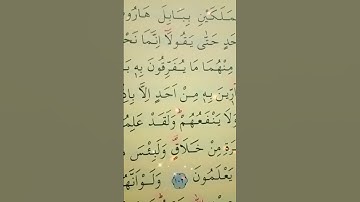 مَلَكَيْنِ بِبَابِلَ هَارُو
حَدٍ حَتّٰى يَقُولَٓا اِنَّمَا نَحْ
مِنْهُمَا مَا يُفَرِّقُونَ بِه۪
ٓارّ۪ينَ بِه۪ مِنْ اَحَدٍ اِلَّا بِاِ
وَلَا يَنْفَعُهُمْ وَلَقَدْ عَلِمُ
رَةِ مِنْ خَلَاقٍ وَلَبِئْسَ
يَعْلَمُونَ ١٠٢ وَلَوْ اَنَّهُ